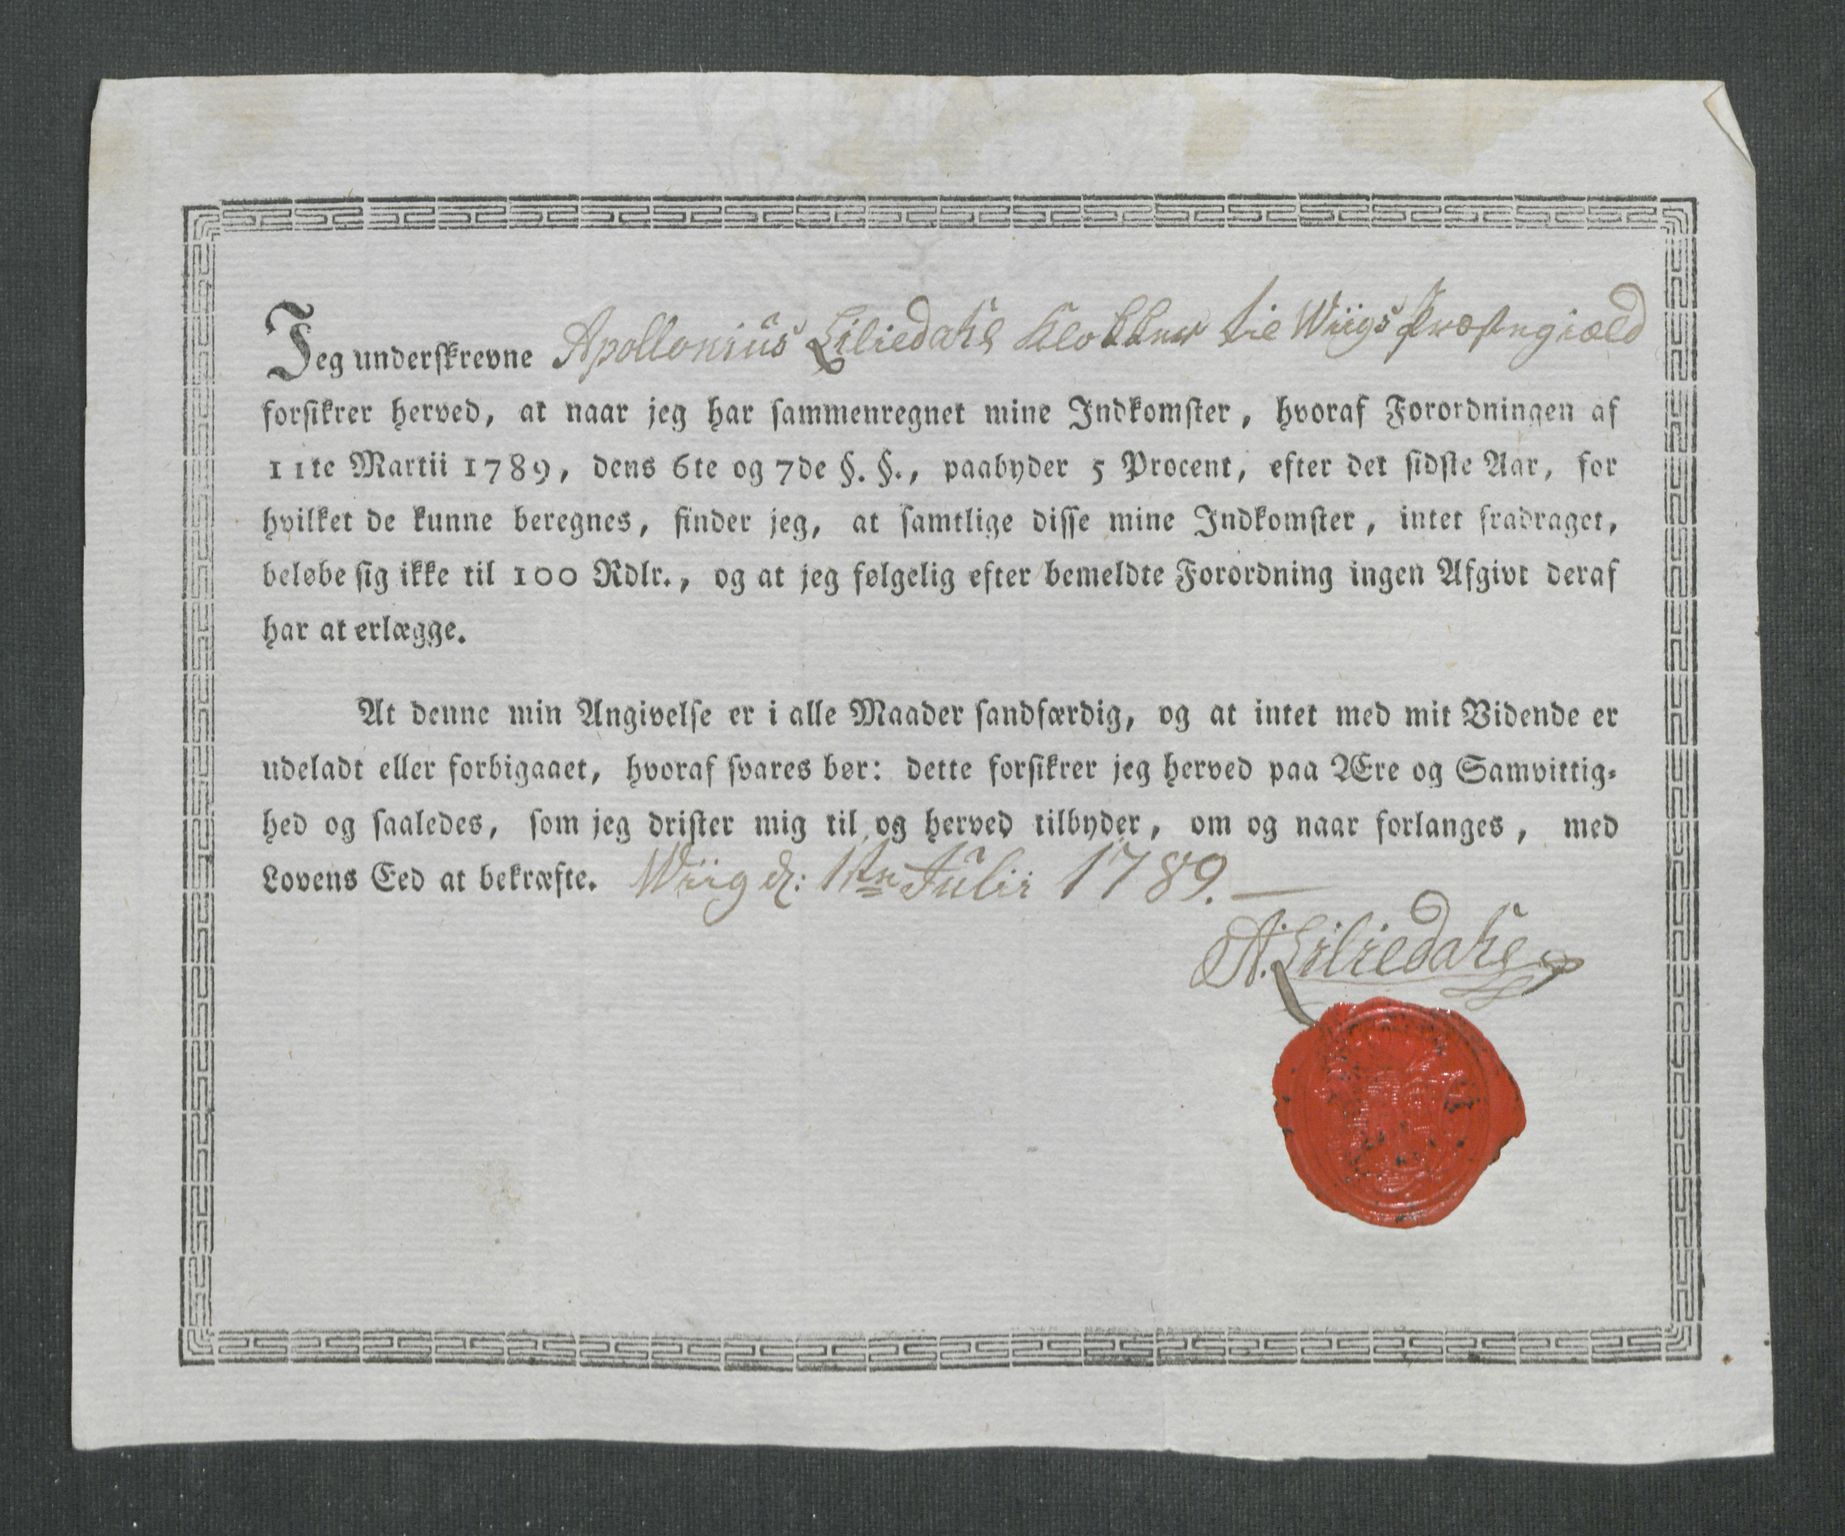 Jeg underskrevne Apollonius Liliedahl Klokker til Wiigs Præstegiæld
forsikrer herved, at naar jeg har sammenregnet mine Indkomster, hvoraf Forordningen af
11te Martii 1789, dens 6te og 7de §. §., paabyder 5 Procent, efter det sidste Aar, for
hvilket de kunne beregnes, finder jeg, at samtlige disse mine Indkomster, intet fradraget,
beløbe sig ikke til 100 Rdlr., og at jeg følgelig efter bemeldte Forordning ingen Afgivt deraf
har at erlægge.
At denne min Angivelse er i alle Maader sandfærdig, og at intet med mit Vidende er
udeladt eller forbigaaet, hvoraf svares bør: dette forsikrer jeg herved paa Ære og Samvittig-
hed og saaledes, som jeg drister mig til og herved tilbyder, om og naar forlanges, med
Lovens Eed at bekræfte. Wiig d: 1ste Julii 1789.
A. Liliedahl